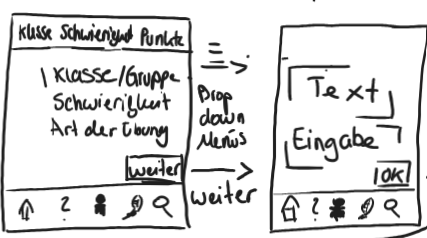 Klasse Schwierigkeit Punkte
Klasse/Gruppe
Schwierigkeit
Art der Übung
weiter
?
Drop
down
Menüs
weiter
Text
Eingabe
OK
?